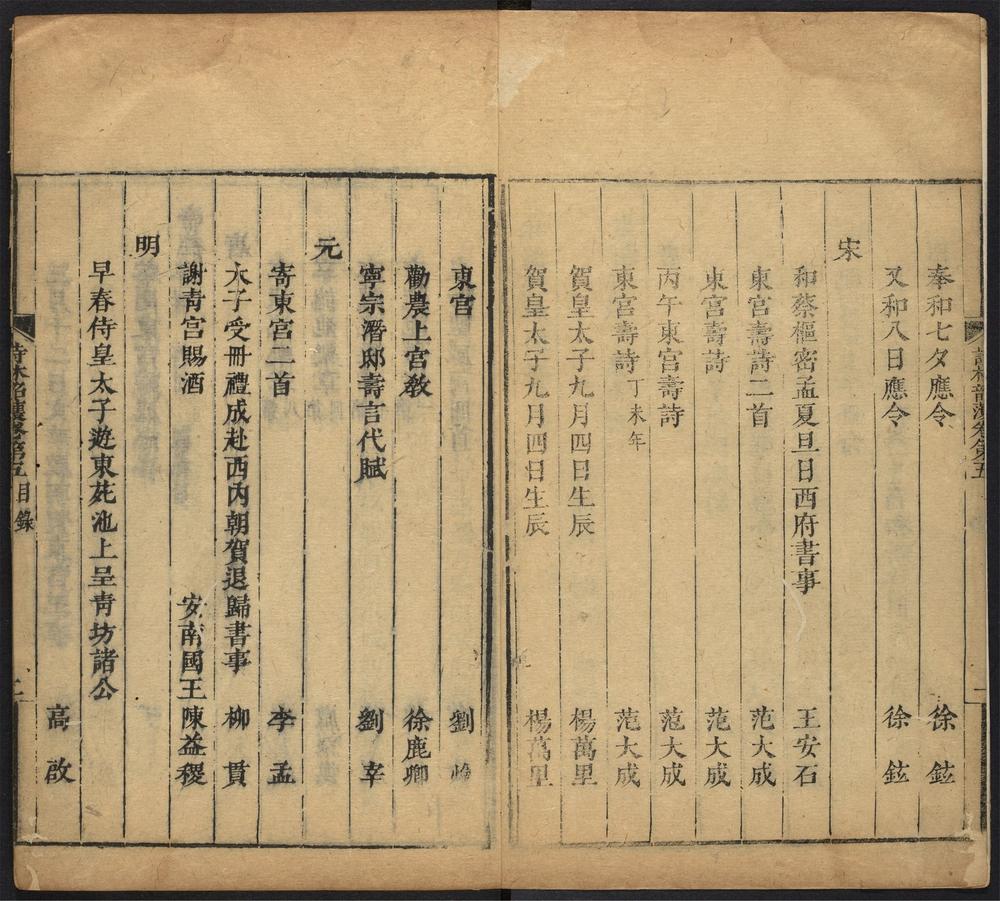 奉和七夕應令 徐鉉
又和八日應令 徐鉉
宋
和蔡樞密孟夏旦日西府書事 王安石
東宮壽詩二首 范大成
東宮壽詩 范大成
丙午東宮壽詩 范大成
東宮壽詩丁未年 范大成
賀皇太子九月四日生辰 楊萬里
賀皇太子九月四日生辰 楊萬里
東宮 劉
勸農上宮教 徐鹿卿
寧宗潛邸壽言代賦 劉宰
元
寄東宮二首 李孟
太子受冊禮成赴西內朝賀退歸書事 柳貫
謝青宮賜酒 安南國王陳益稷
明
早春侍皇太子遊東苑池上呈青坊諸公
高啟
詩林韶濩卷第五目錄 二